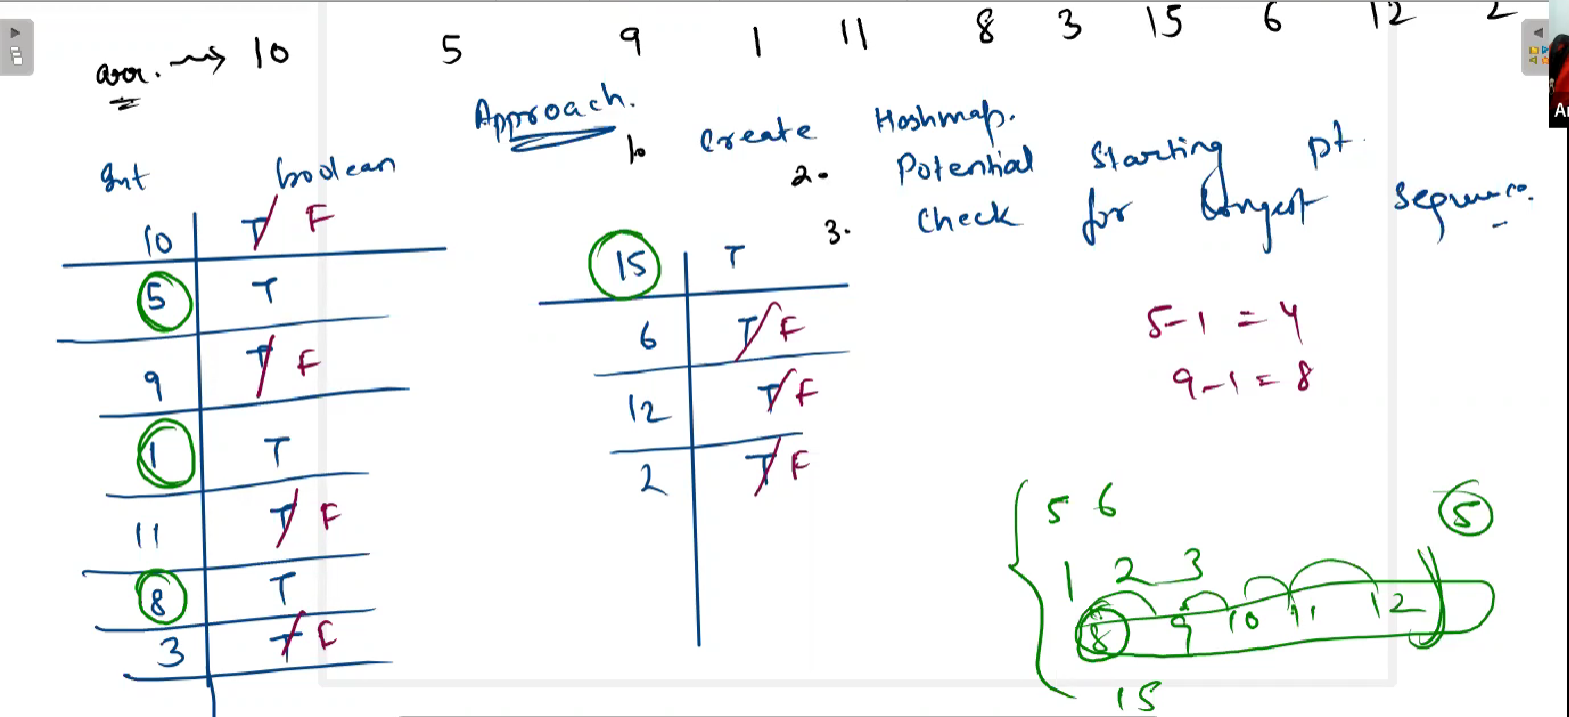 arr. → 10 5 9 1 11 8 3 15 6 12 2
Approach.
1. Create Hashmap.
2. Potential Starting pt.
3. Check for longest sequence.
Int boolean
10 T F
5 T
9 T F
1 T
11 T F
8 T
3 T F
15 T
6 T F
12 T F
2 T F
5-1 = 4
9-1 = 8
5 6
5
1 2 3
8 9 10 11 12
15